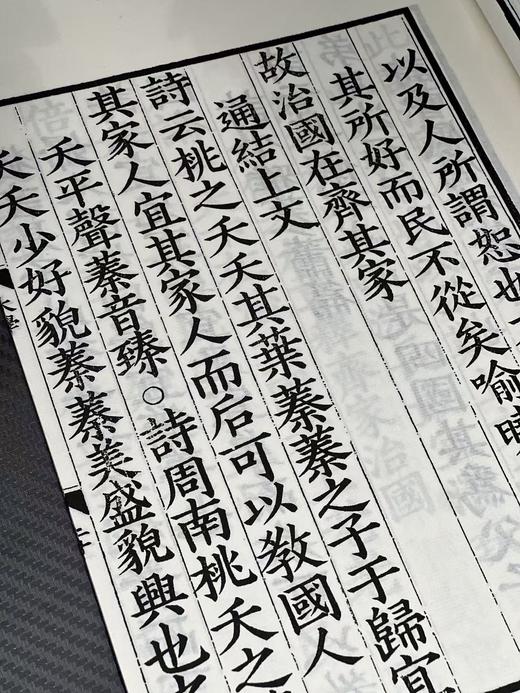 以及人所謂恕也
其所好而民不從矣喻
故治國在齊其家
通結上文
詩云桃之夭夭其葉蓁蓁之子于歸宜
其家人宜其家人而后可以教國人
夭平聲蓁音臻○詩周南桃夭之
夭夭少好貌蓁蓁美盛貌興也